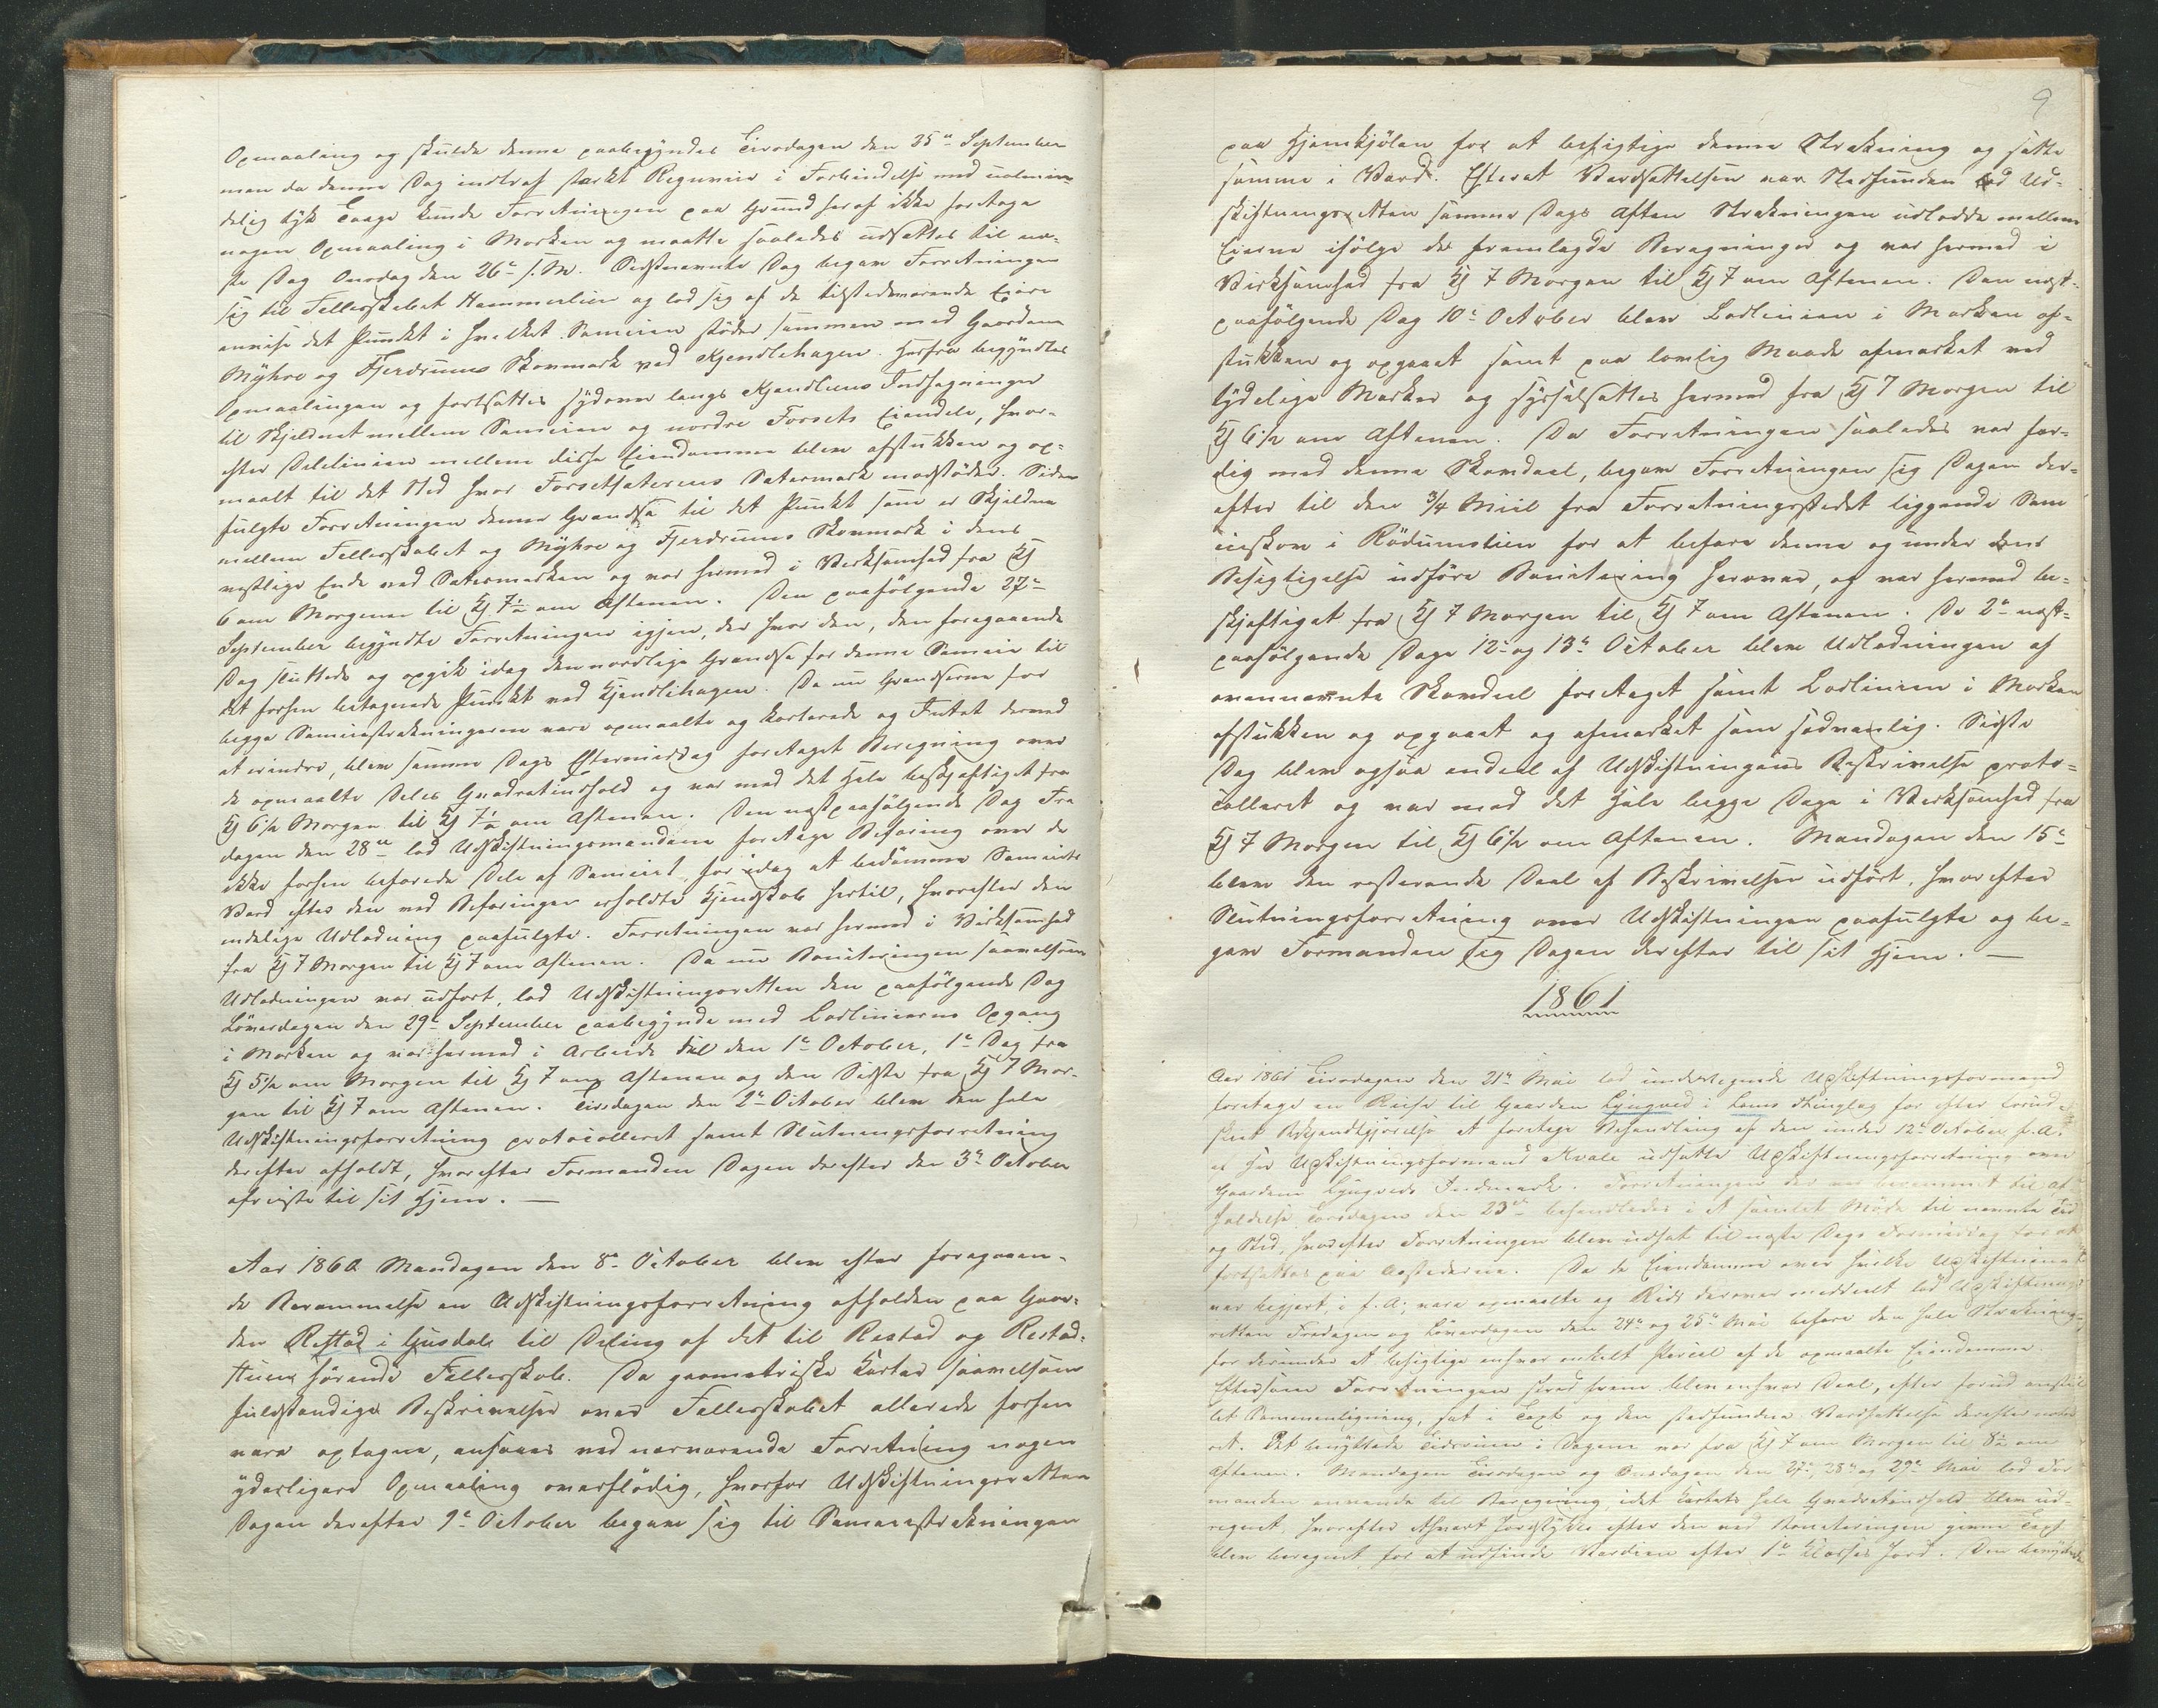 Opmaaling og skulde denne paabegyndes Tirsdagen den 25de September
men da denne Dag indtraf stærkt Regnveir i Forbindelse med ualmin-
delig tyk Taage kunde Forretningen paa Grund heraf ikke foretage
nogen Opmaaling i Marken og maatte saaledes udsættes til næ-
ste Dag Onsdag den 26de s. M. Sidstnævnte Dag begav Forretningen
sig til Fellesskabet Hammerlien og lod sig af de tilstedeværende Eiere
anvise det Punkt i hvilket Sameien støder sammen med Gaardene
Myhre og Fjerdrums Skovmark ved Kjendlihagen. Herfra begyndtes
Opmaalingen og fortsattes sydover langs Kjendliens Indhegninger
til Skjeldnet mellem Sameien og nordre Forsets Eiendele, hvor-
efter Delelinien mellem disse Eiendomme blev afstukken og op-
maalt til det Sted hvor Forsetsæterens Sætermark modstøder. Siden
fulgte Forretningen denne Grændse til det Punkt som er Skjeldne
mellem Fellesskabet og Myhre og Fjerdrums Skovmark i dens
vestlige Ende ved Sætermarken og var hermed i Virksomhed fra Kl
6 om Morgenen til Kl 7½ om Aftenen. Den paafølgende 27de
September begyndte Forretningen igjen, der hvor den, den foregaaende
Dag sluttede og opgik idag den nordlige Grændse for denne Sameie til
det forhen betegnede Punkt ved Kjendlihagen. Da nu Grændserne for
begge Sameiestrækningerne vare opmaalte og karterede og Intet derved
at erindre, blev samme Dags Eftermiddag foretaget Beregning over
de opmaalte Deles Quadratindhold og var med det Hele beskjæftiget fra
Kl 6½ Morgen til Kl 7½ om Aftenen. Den næstpaafølgende Dag Fre
dagen den 28de lod Udskiftningsmændene foretage Befaring over de
ikke forhen befarede Dele af Sameiet, for idag at bedømme Sameiets
Værd efter den ved Befaringen erholdte Kjendskab hertil, hvorefter den
endelige Udlodning paafulgte. Forretningen var hermed i Virksomhed
fra Kl 7 Morgen til Kl 7 om Aftenen. Da nu Boniteringen saavelsom
Udlodningen var udført, lod Udskiftningsretten den paafølgende Dag
Löverdagen den 29de September paabegynde med Lodliniernes Opgang
i Marken og var hermed i Arbeide til den 1ste October, 1ste Dag fra
Kl 5½ om Morgen til Kl 7 om Aftenen og den Sidste fra Kl 7 Mor-
gen til Kl 7 om Aftenen. Tirsdagen den 2den October blev den hele
Udskiftningsforretning protocolleret samt Slutningsforretning
derefter afholdt, hvorefter Formanden Dagen derefter den 3die October
afreiste til sit Hjem. —
Aar 1860 Mandagen den 8de October blev efter foregaaen-
de Berammelse en Udskiftningsforretning afholden paa Gaar-
den Restad i Gusdal til Deling af det til Restad og Restad-
stuen hørende Fellesskab. Da geometriske Karter saavelsom
fuldstændige Beskrivelser over Fellesskabet allerede forhen
vare optagne, ansaaes ved nærværende Forretning nogen
yderligere Opmaaling overflødig, hvorfor Udskiftningsretten
Dagen derefter 9de October begav sig til Sameiestrækningen
9
paa Hjemkjölen for at besigtige denne Strækning og sætte
samme i Værd. Efterat Værdsættelsen var Stedfunden lod Ud-
skiftningsretten samme Dags Aften Strækningen udlodde mellem
Eierne ifølge de fremlagde Beregninger og var hermed i
Virksomhed fra Kl 7 Morgen til Kl 7 om Aftenen. Den næst-
paafølgende Dag 10de October blev Lodlinien i Marken af-
stukken og opgaaet samt paa lovlig Maade afmærket med
tydelige Mærker og sysselsattes hermed fra Kl 7 Morgen til
Kl 6½ om Aftenen. Da Forretningen saaledes var fær-
dig med denne Skovdeel, begav Forretningen sig Dagen der-
efter til den ¾ Miil fra Forretningsstedet liggende Sam
eieskov i Rödumslien for at befare denne og under dens
Besigtigelse udføre Bonitering herover, og var hermed be-
skjæftiget fra Kl 7 Morgen til Kl 7 om Aftenen. De 2de næst-
paafølgende Dage 12te og 13de October blev Udlodningen af
ovennævnte Skovdeel foretaget samt Lodlinien i Marken
afstukken og opgaaet og afmærket som sædvanlig. Sidste
Dag blev ogsaa endeel af Udskiftningens Beskrivelse proto-
colleret og var med det Hele begge Dage i Virksomhed fra
Kl 7 Morgen til Kl 6½ om Aftenen. Mandagen den 15de
blev den resterende Deel af Beskrivelsen udført, hvorefter
Slutningsforretning over Udskiftningen paafulgte og be-
gav Formanden sig Dagen derefter til sit Hjem. —
1861
Aar 1861 Tirsdagen den 21de Mai lod undertegnede Udskiftningsformand
foretage en Reise til Gaarden Lyngved i Loms Thinglag for efter forud-
skeet Bekjendtgjørelse at foretage Behandling af den under 12te October f. A.
af Hr Udskiftningsformand Kvale udsatte Udskiftningsforretning over
Gaarden Lyngveds Indmark. Forretningen der var berammet til Af
holdelse Torsdagen den 23de behandledes i et samlet Møde til nævnte Tid
og Sted, hvorefter Forretningen blev udsat til næste Dags Formiddag for at
fortsættes paa Aastederne. Da de Eiendomme over hvilke Udskiftning
var begjert, i f. A. vare opmaalte og Rids derover meddeelt lod Udskiftnings
retten Fredagen og Löverdagen den 24de og 25de Mai befare den hele Strækning
for derunder at besigtige enhver enkelt Parcel af de opmaalte Eiendomme.
Eftersom Forretningen skred frem blev enhver Deel, efter forud anstil
let Sammenligning, sat i Taxt og den stedfundne Værdsættelse derefter noter
et. Det benyttede Tidsrum i Dagene var fra Kl 7 om Morgen til 8½ om
Aftenen. Mandagen Tirsdagen og Onsdagen den 27de, 28de og 29de Mai lod For
manden anvende til Beregning idet Kartets hele Quadratindhold blev ud-
regnet, hvorefter ethvert Jordstykke efter den ved Boniteringen givne Taxt
blev beregnet, for at udfinde Værdien efter 1ste Klasses Jord. Den benyttede